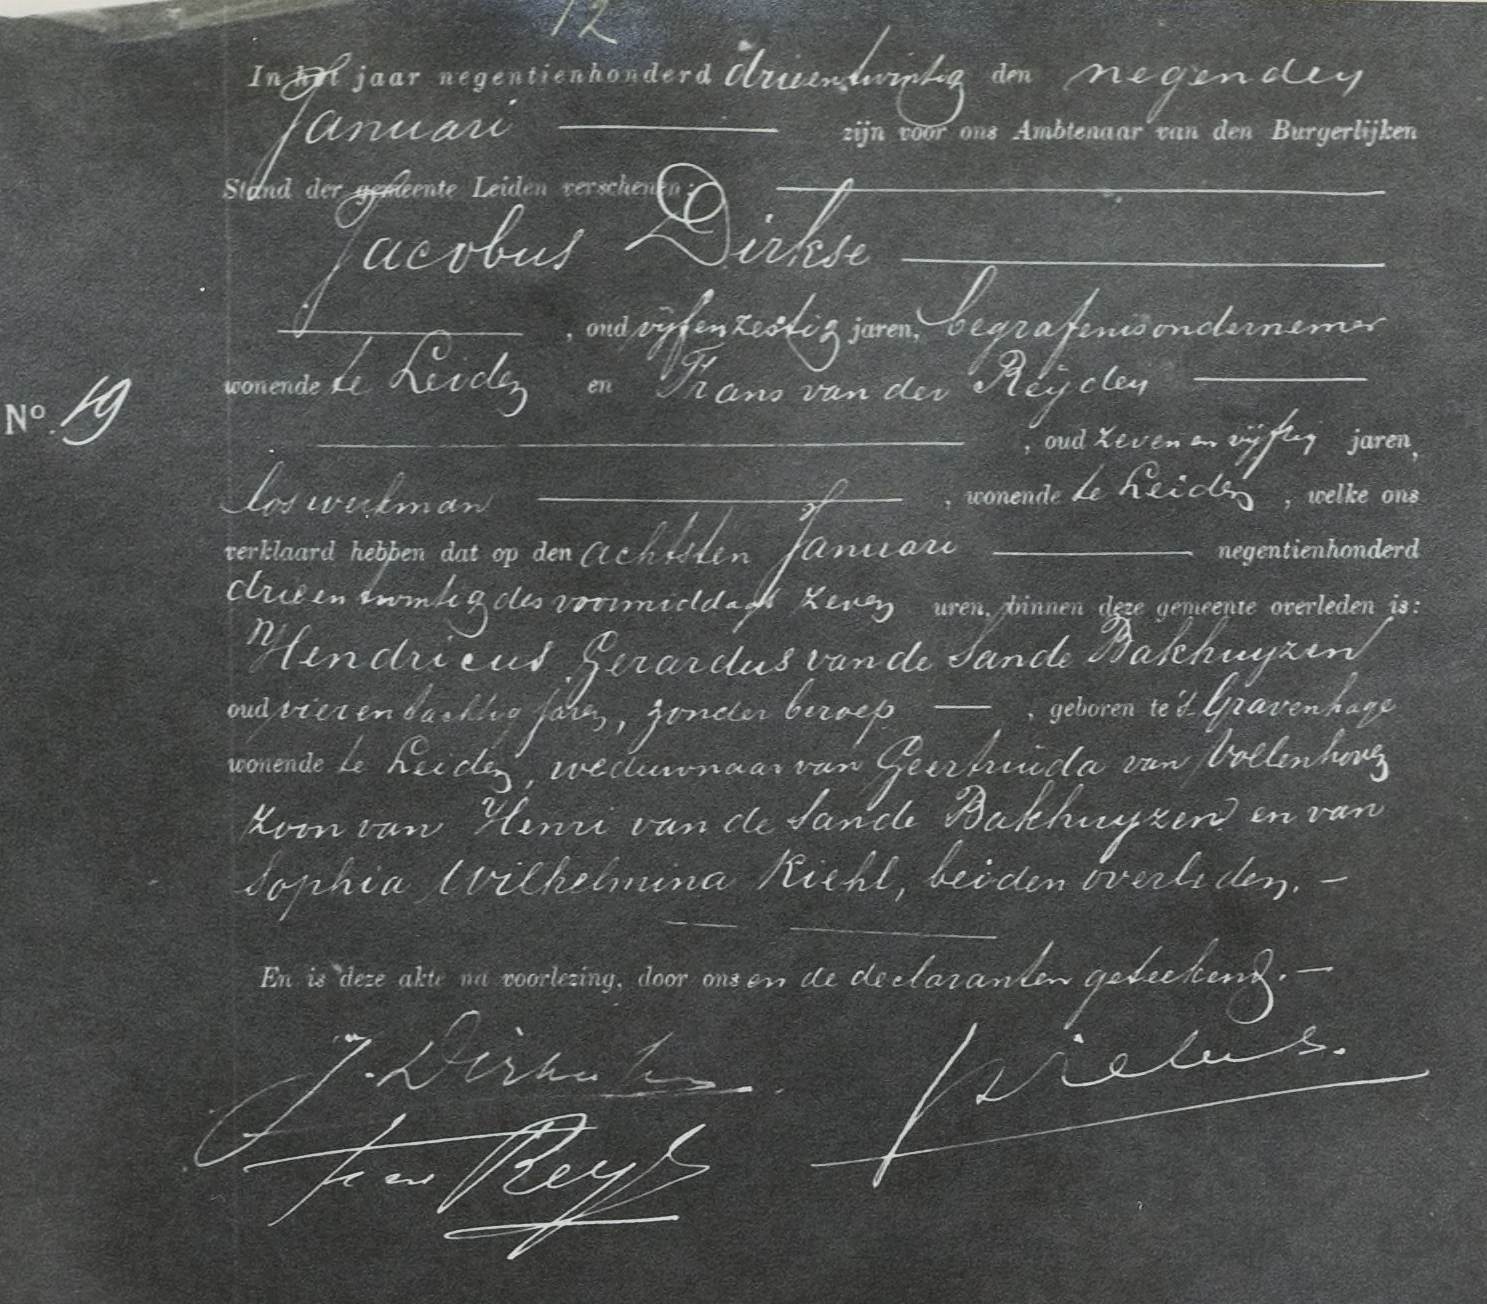 12
In het jaar negentienhonderd drieentwintig den negenden
Januari zijn voor ons Ambtenaar van den Burgerlijken
Stand der gemeente Leiden verschenen:
Jacobus Dirkse
, oud vijfenzestig jaren, begrafenisondernemer
wonende te Leiden en Frans van der Reijden
No. 19
, oud zeven en vijftig jaren,
los werkman , wonende te Leiden , welke ons
verklaard hebben dat op den achtsten Januari negentienhonderd
drieentwintig des voormiddags zeven uren, binnen deze gemeente overleden is:
Hendricus Gerardus van de Sande Bakhuyzen
oud vierentachtig jaren, zonder beroep , geboren te 's Gravenhage
wonende te Leiden, weduwnaar van Geertruida van Vollenhoven
zoon van Henri van de Sande Bakhuyzen en van
Sophia Wilhelmina Kiehl, beiden overleden. –
En is deze akte na voorlezing, door ons en de declaranten geteekend. –
J. Dirkse